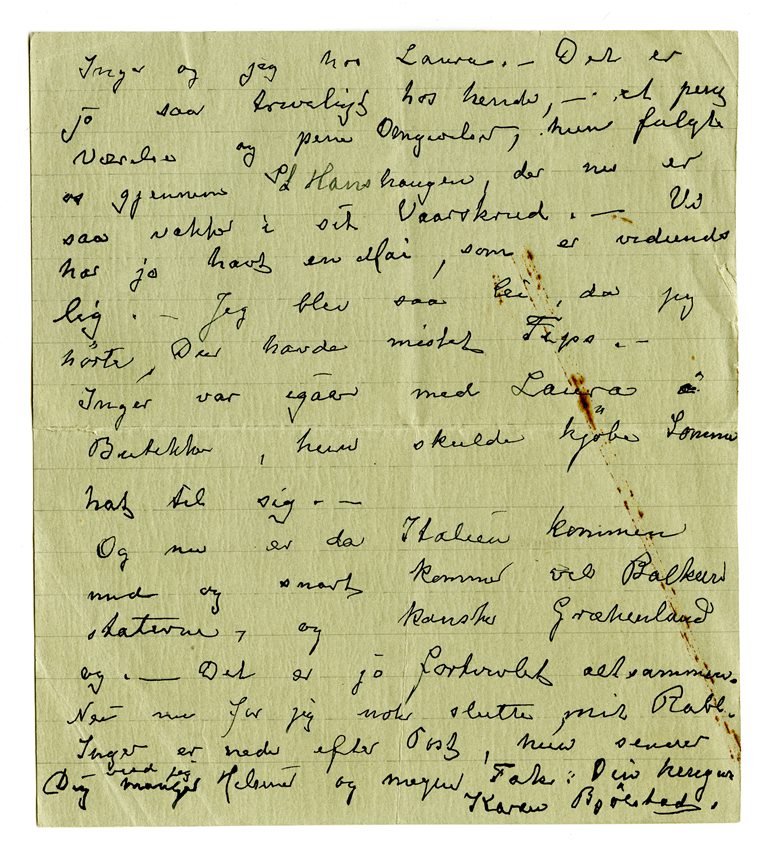 Inger og jeg hos Laura. – Det er
jo saa triveligt hos hende, – et pent
Værelse og pene Omgivelser, hun fulgte
os gjennem St Hanshaugen, der nu er
saa vakker i sit Vaarskrud. – Vi
har jo havt en Mai, som er vidunder
lig. – Jeg blev saa lei, da jeg
hørte, Du havde mistet Tips. –
Inger var igaar med Laura i
Butikker, hun skulde kjøbe Sommer
hat til sig. –
Og nu er da Italien kommen
med og snart kommer vel Balkan
staterne, og kanske Grækenland
og. – Det er jo fortvilet altsammen.
Nei nu faar jeg nok slutte mit Rabl.
Inger er nede efter Post, hun sender
Dig med mig Hilsener og megen Tak. Din hengivne
Karen Bjølstad.